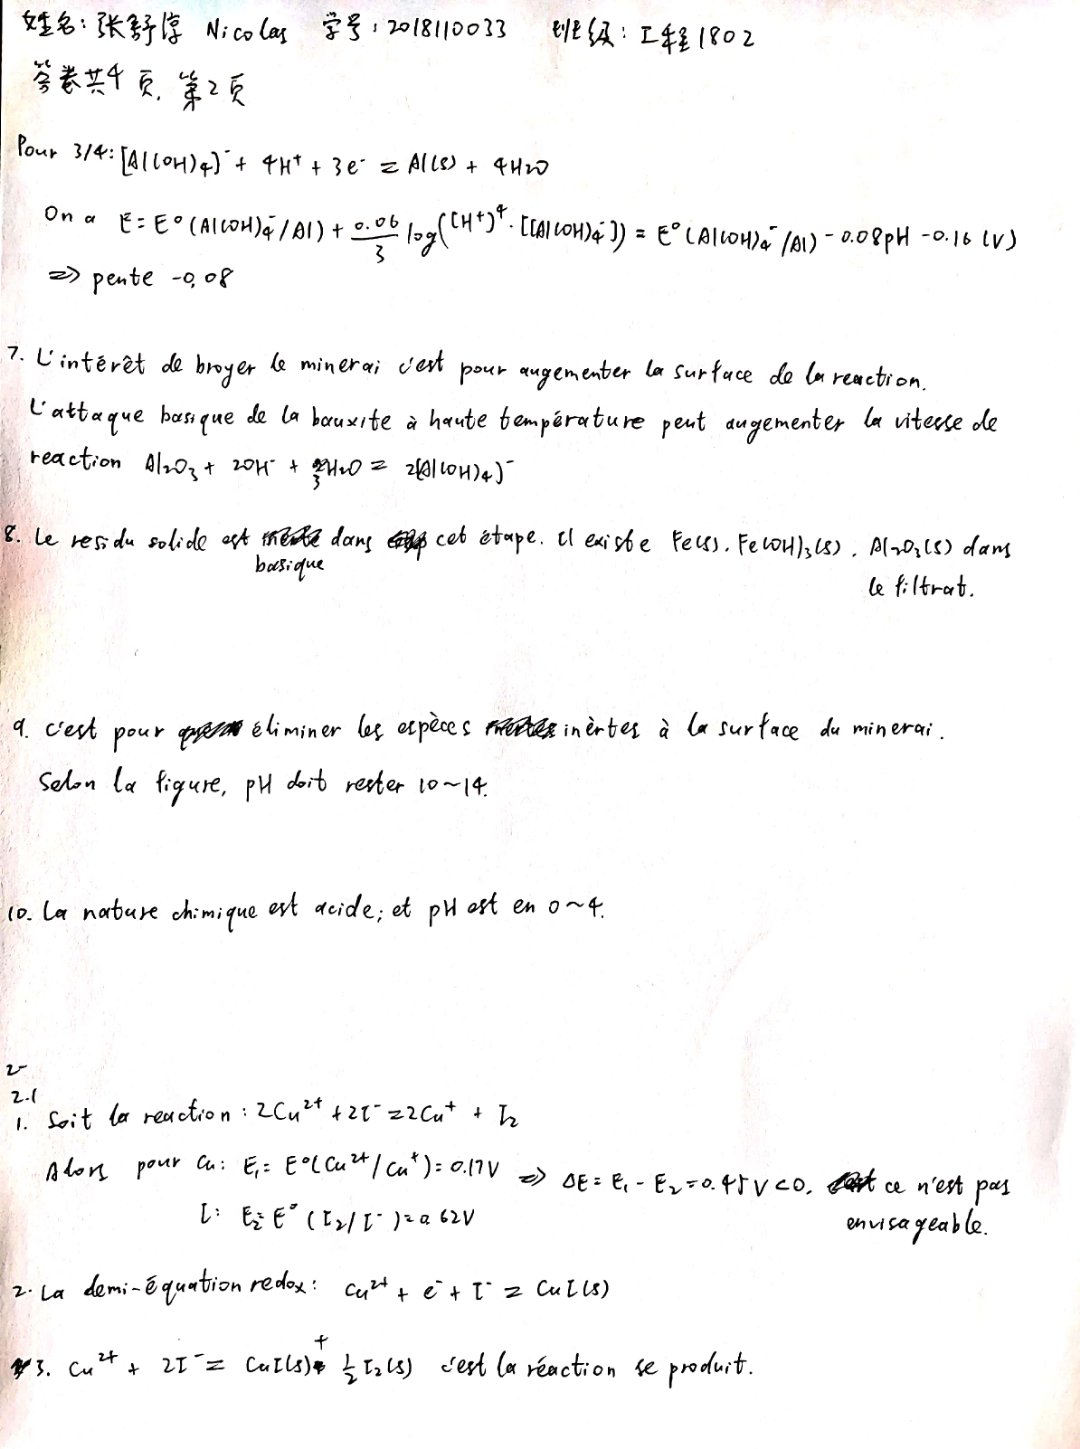 姓名: 张舒淳 Nicolas 学号: 2018110033 班级: 工程1802
答卷共4页, 第2页
Pour 3/4: [Al(OH)4]⁻ + 4H⁺ + 3e⁻ = Al(s) + 4H2O
On a E = E°(Al(OH)4⁻/Al) + 0.06/3 log([H⁺]⁴·[[Al(OH)4⁻]) = E°(Al(OH)4⁻/Al) - 0.08pH - 0.16 (V)
=> pente -0,08
7. L'intérêt de broyer le minerai c'est pour augementer la surface de la reaction.
L'attaque basique de la bauxite à haute température peut augementer la vitesse de
reaction Al2O3 + 2OH⁻ + 3H2O = 2[Al(OH)4]⁻
8. Le residu solide est basique dans cet étape. Il existe Fe(s), Fe(OH)3(s), Al2O3(s) dans
le filtrat.
9. c'est pour éliminer les espèces inèrtes à la surface du minerai.
Selon la figure, pH doit rester 10~14.
10. La nature chimique est acide; et pH est en 0~4.
2-
2.1
1. Soit la reaction: 2Cu²⁺ + 2I⁻ = 2Cu⁺ + I2
Alors pour Cu: E1 = E°(Cu²⁺/Cu⁺) = 0.17V => ΔE = E1 - E2 = 0.45V < 0. ce n'est pas
envisageable.
I: E2 = E°(I2/I⁻) = 0.62V
2. La demi-équation redox: Cu²⁺ + e⁻ + I⁻ = CuI(s)
3. Cu²⁺ + 2I⁻ = CuI(s) + 1/2 I2(s) c'est la réaction se produit.